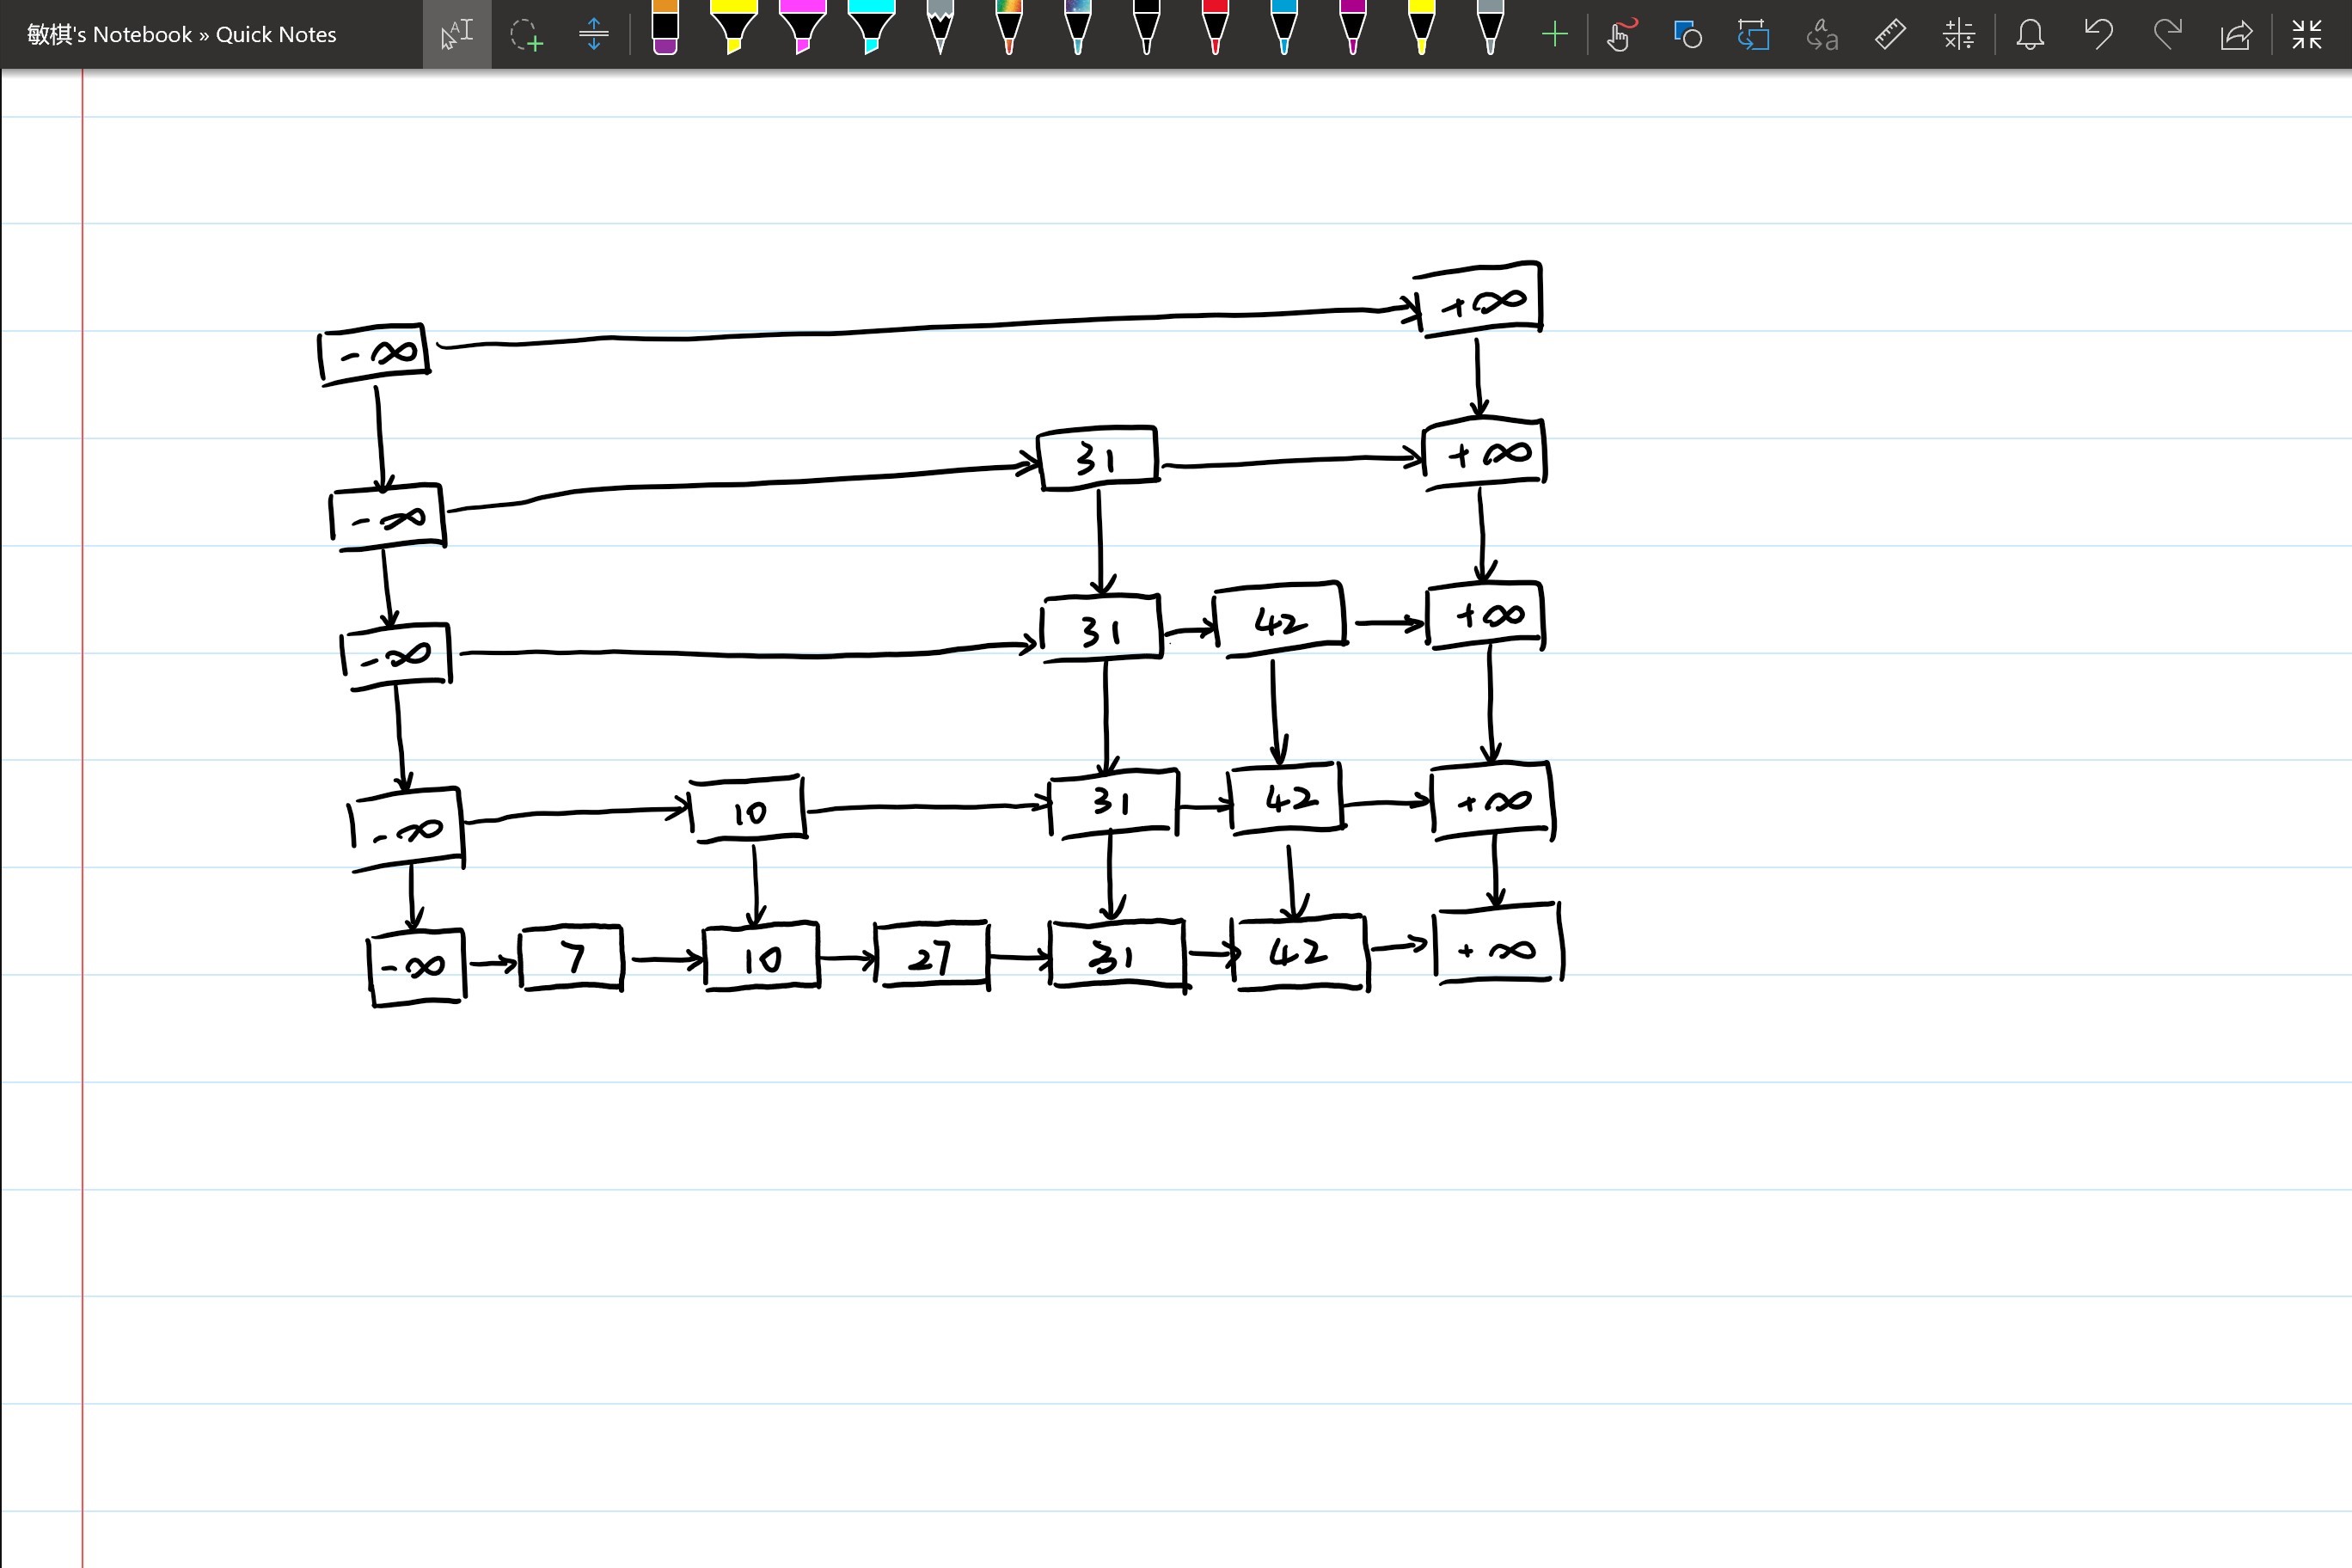 敏棋's Notebook » Quick Notes
+ ∞
- ∞
31 + ∞
- ∞
31 42 + ∞
- ∞
- ∞ 10 31 42 + ∞
- ∞ 7 10 27 31 42 + ∞